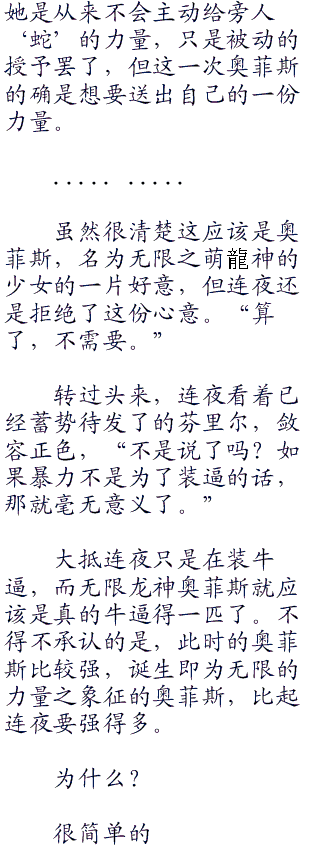 她是从来不会主动给旁人
‘蛇’的力量，只是被动的
授予罢了，但这一次奥菲斯
的确是想要送出自己的一份
力量。
..... .....
虽然很清楚这应该是奥
菲斯，名为无限之萌龍神的
少女的一片好意，但连夜还
是拒绝了这份心意。“算
了，不需要。”
转过头来，连夜看着已
经蓄势待发了的芬里尔，敛
容正色，“不是说了吗？如
果暴力不是为了装逼的话，
那就毫无意义了。”
大抵连夜只是在装牛
逼，而无限龙神奥菲斯就应
该是真的牛逼得一匹了。不
得不承认的是，此时的奥菲
斯比较强，诞生即为无限的
力量之象征的奥菲斯，比起
连夜要强得多。
为什么？
很简单的